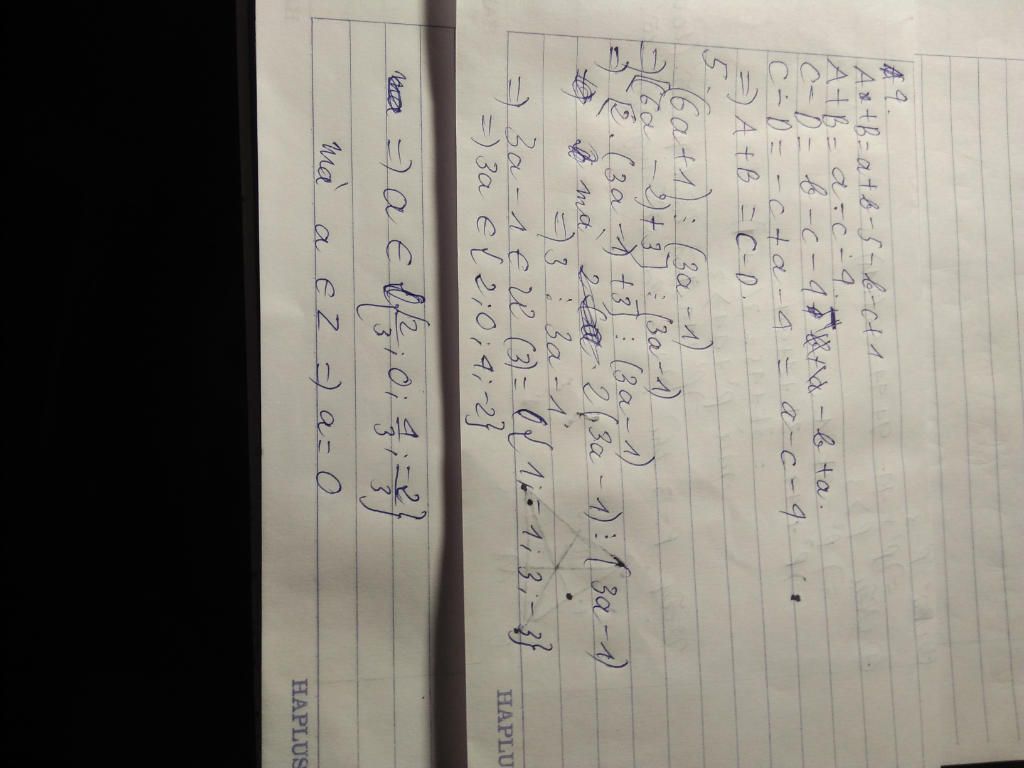 4.
A+B=a+b-5-b-c+1
A+B= a-c-4.
C-D= b-c-4 - b+a.
C-D= -c+a-4 = a-c-4.
=) A+B = C-D.
5. (6a+1)⋮(3a-1)
=) [(6a-2)+3]⋮(3a-1)
=) [2.(3a-1)+3]⋮(3a-1)
mà 2(3a-1)⋮(3a-1)
=) 3⋮3a-1
=) 3a-1 ∈ Ư(3)= {1;-1;3;-3}
=) 3a ∈ {2;0;4;-2}
=) a ∈ {2/3;0;4/3;-2/3}
mà a ∈ Z =) a=0
HAPLUS
HAPLUS